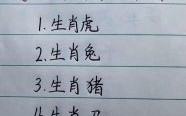 1.生肖虎
2.生肖兔
3.生肖猪